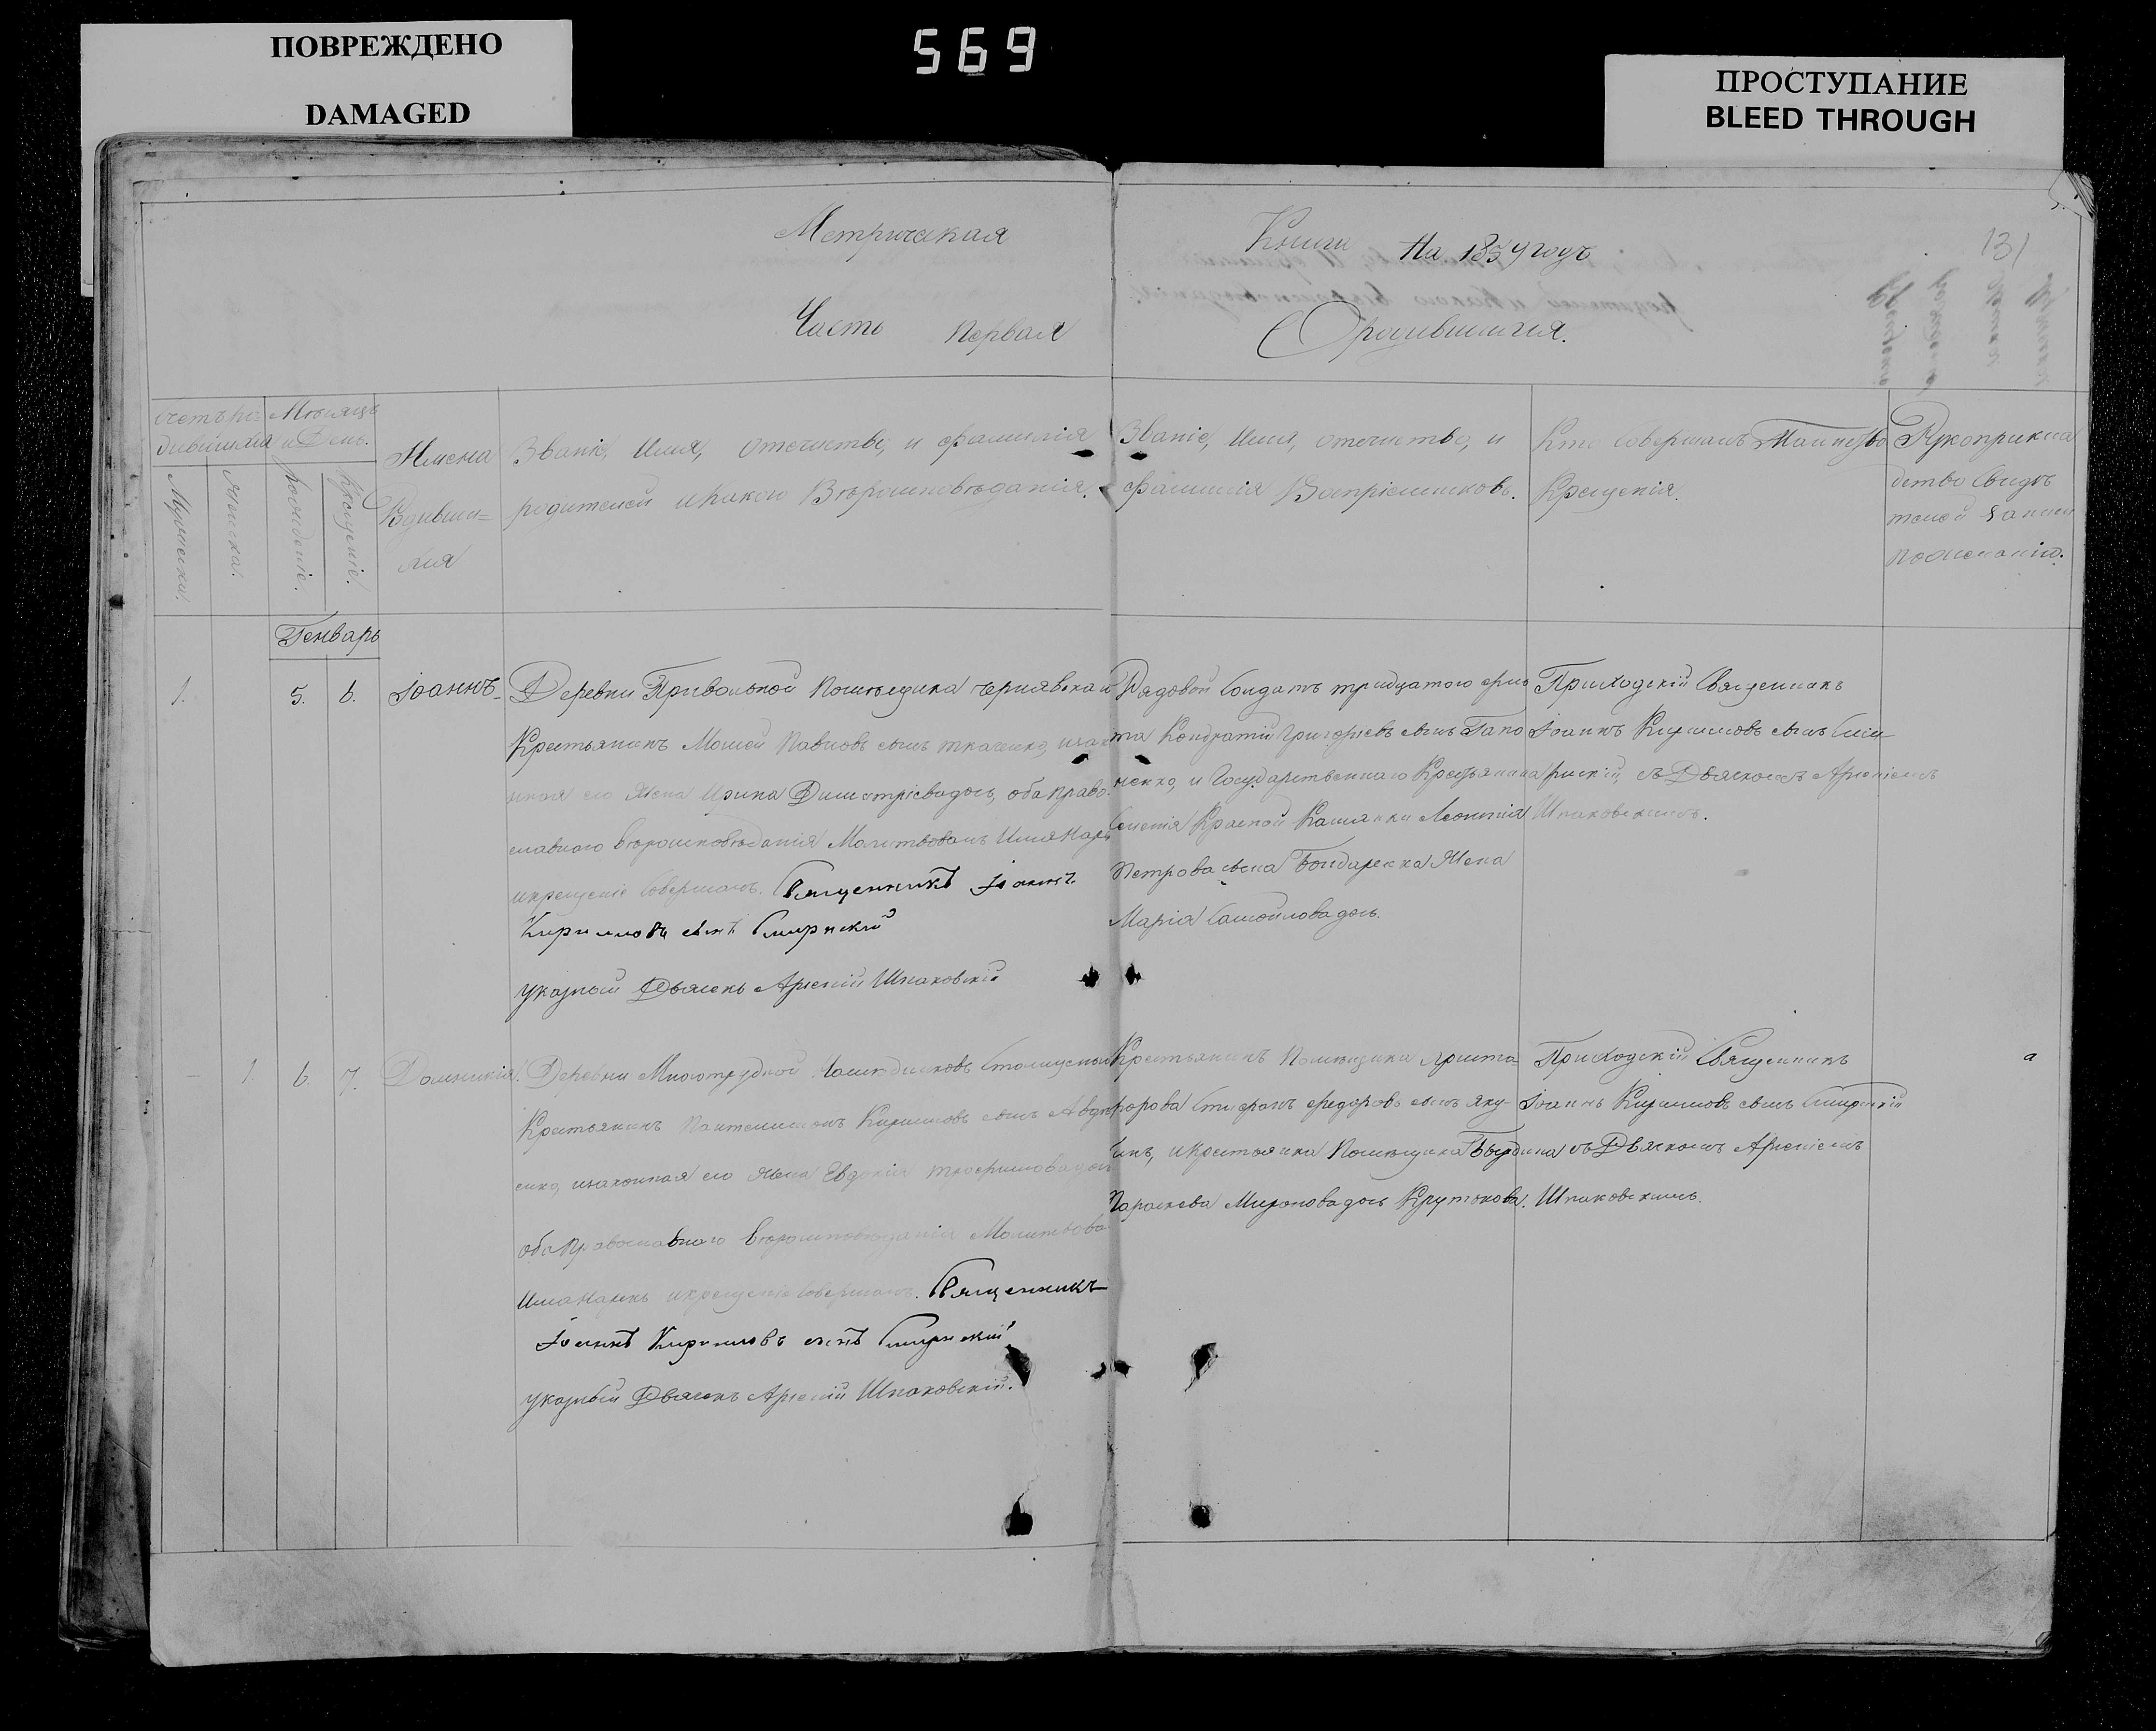 ПОВРЕЖДЕНО
DAMAGED
569
ПРОСТУПАНИЕ
BLEED THROUGH
131
Метрическая Книга На 1859 годъ
Часть первая О родившихся.
Счетъ ро
дившихся
Мужеска.
Женска.
Мѣсяцъ
и День.
рожденіе.
крещеніе.
Имена
Родивши=
хся
Званіе, Имя, отечество, и фамилія
родителей и какого Вѣроисповѣданія.
Званіе, имя, отечество, и
фамилія Воспріемниковъ.
Кто совершалъ Таинство
Крещенія.
Рукоприкла
дство свидѣ
телей записи
по желанію.
Генварь
1. 5. 6. Іоаннъ
Деревни Привольной помѣщика Чернявска
Крестьянинъ Моисей Павловъ сынъ Ткаченко, и зак
нная его жена Ирина Димитріева дочь, оба право
славнаго вѣроисповѣданія Молитвовалъ Имя Наре
и крещеніе совершалъ. Священникъ Іоаннъ
Кирилловъ сынъ Смирнскій
указный Дьячекъ Арсеній Шпаковскій
Рядовой Солдатъ тридцатого
Кондратій Григорьевъ сынъ Гапо
ненко, и Государственнаго Крестьянина
селенія Красной Камянки Леонтія
Петрова сына Бондаренка Жена
Марія Самойлова дочь.
Приходскій Священникъ
Іоаннъ Кирилловъ сынъ Сми
рнскій, съ Дьячкомъ Арсеніемъ
Шпаковскимъ.
1. 6. 7. Домникія.
Деревни Многотрудной
Крестьянинъ Пантелимонъ Кирилловъ сынъ Авдѣ
енко, и законная его жена Евдокія Трофимова дочь
оба Православнаго вѣроисповѣданія Молитвова
Имя Нареч и крещеніе совершалъ. Священникъ
Іоаннъ Кирилловъ сынъ Смирнскій
указный Дьячекъ Арсеній Шпаковскій.
Крестьянинъ Помѣщика Христа=
форова Стефанъ Федоровъ сынъ Яку-
инъ, и крестьянка Помѣщика
Параскева Миронова дочь Крутькова.
Приходскій Священникъ
Іоаннъ Кирилловъ сынъ Смирнскій
съ Дьячкомъ Арсеніемъ
Шпаковскимъ.